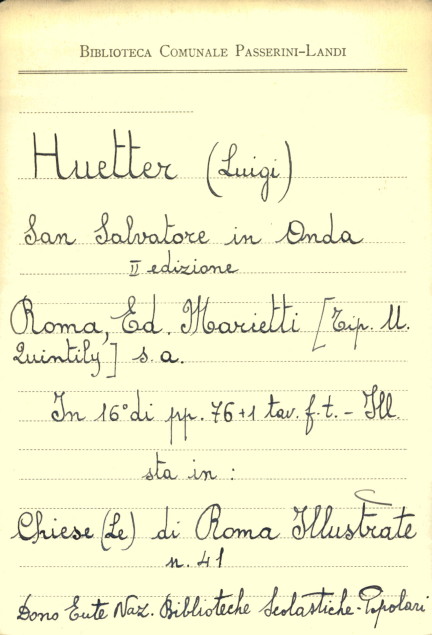 BIBLIOTECA COMUNALE PASSERINI-LANDI
Huetter (Luigi)
San Salvatore in Onda
II edizione
Roma, Ed. Marietti [Tip. U.
Quintily] s. a.
In 16° di pp. 76+1 tav. f. t. - Ill.
sta in :
Chiese (Le) di Roma Illustrate
n. 41
Dono Ente Naz. Biblioteche Scolastiche-Popolari